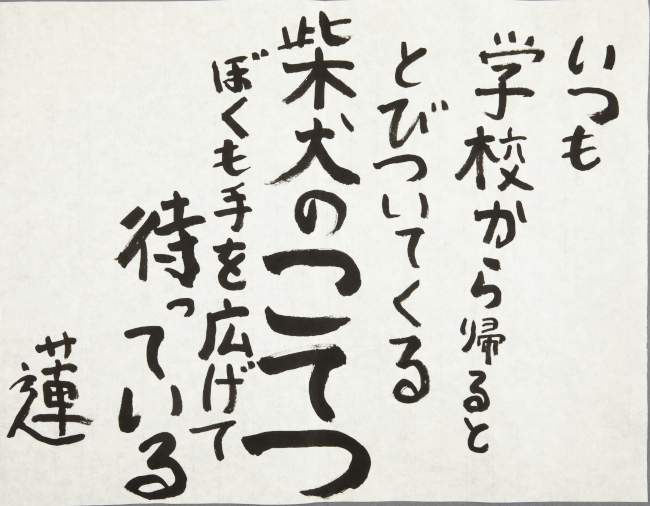 いつも
学校から帰ると
とびついてくる
柴犬のこてつ
ぼくも手を広げて
待っている
蓮